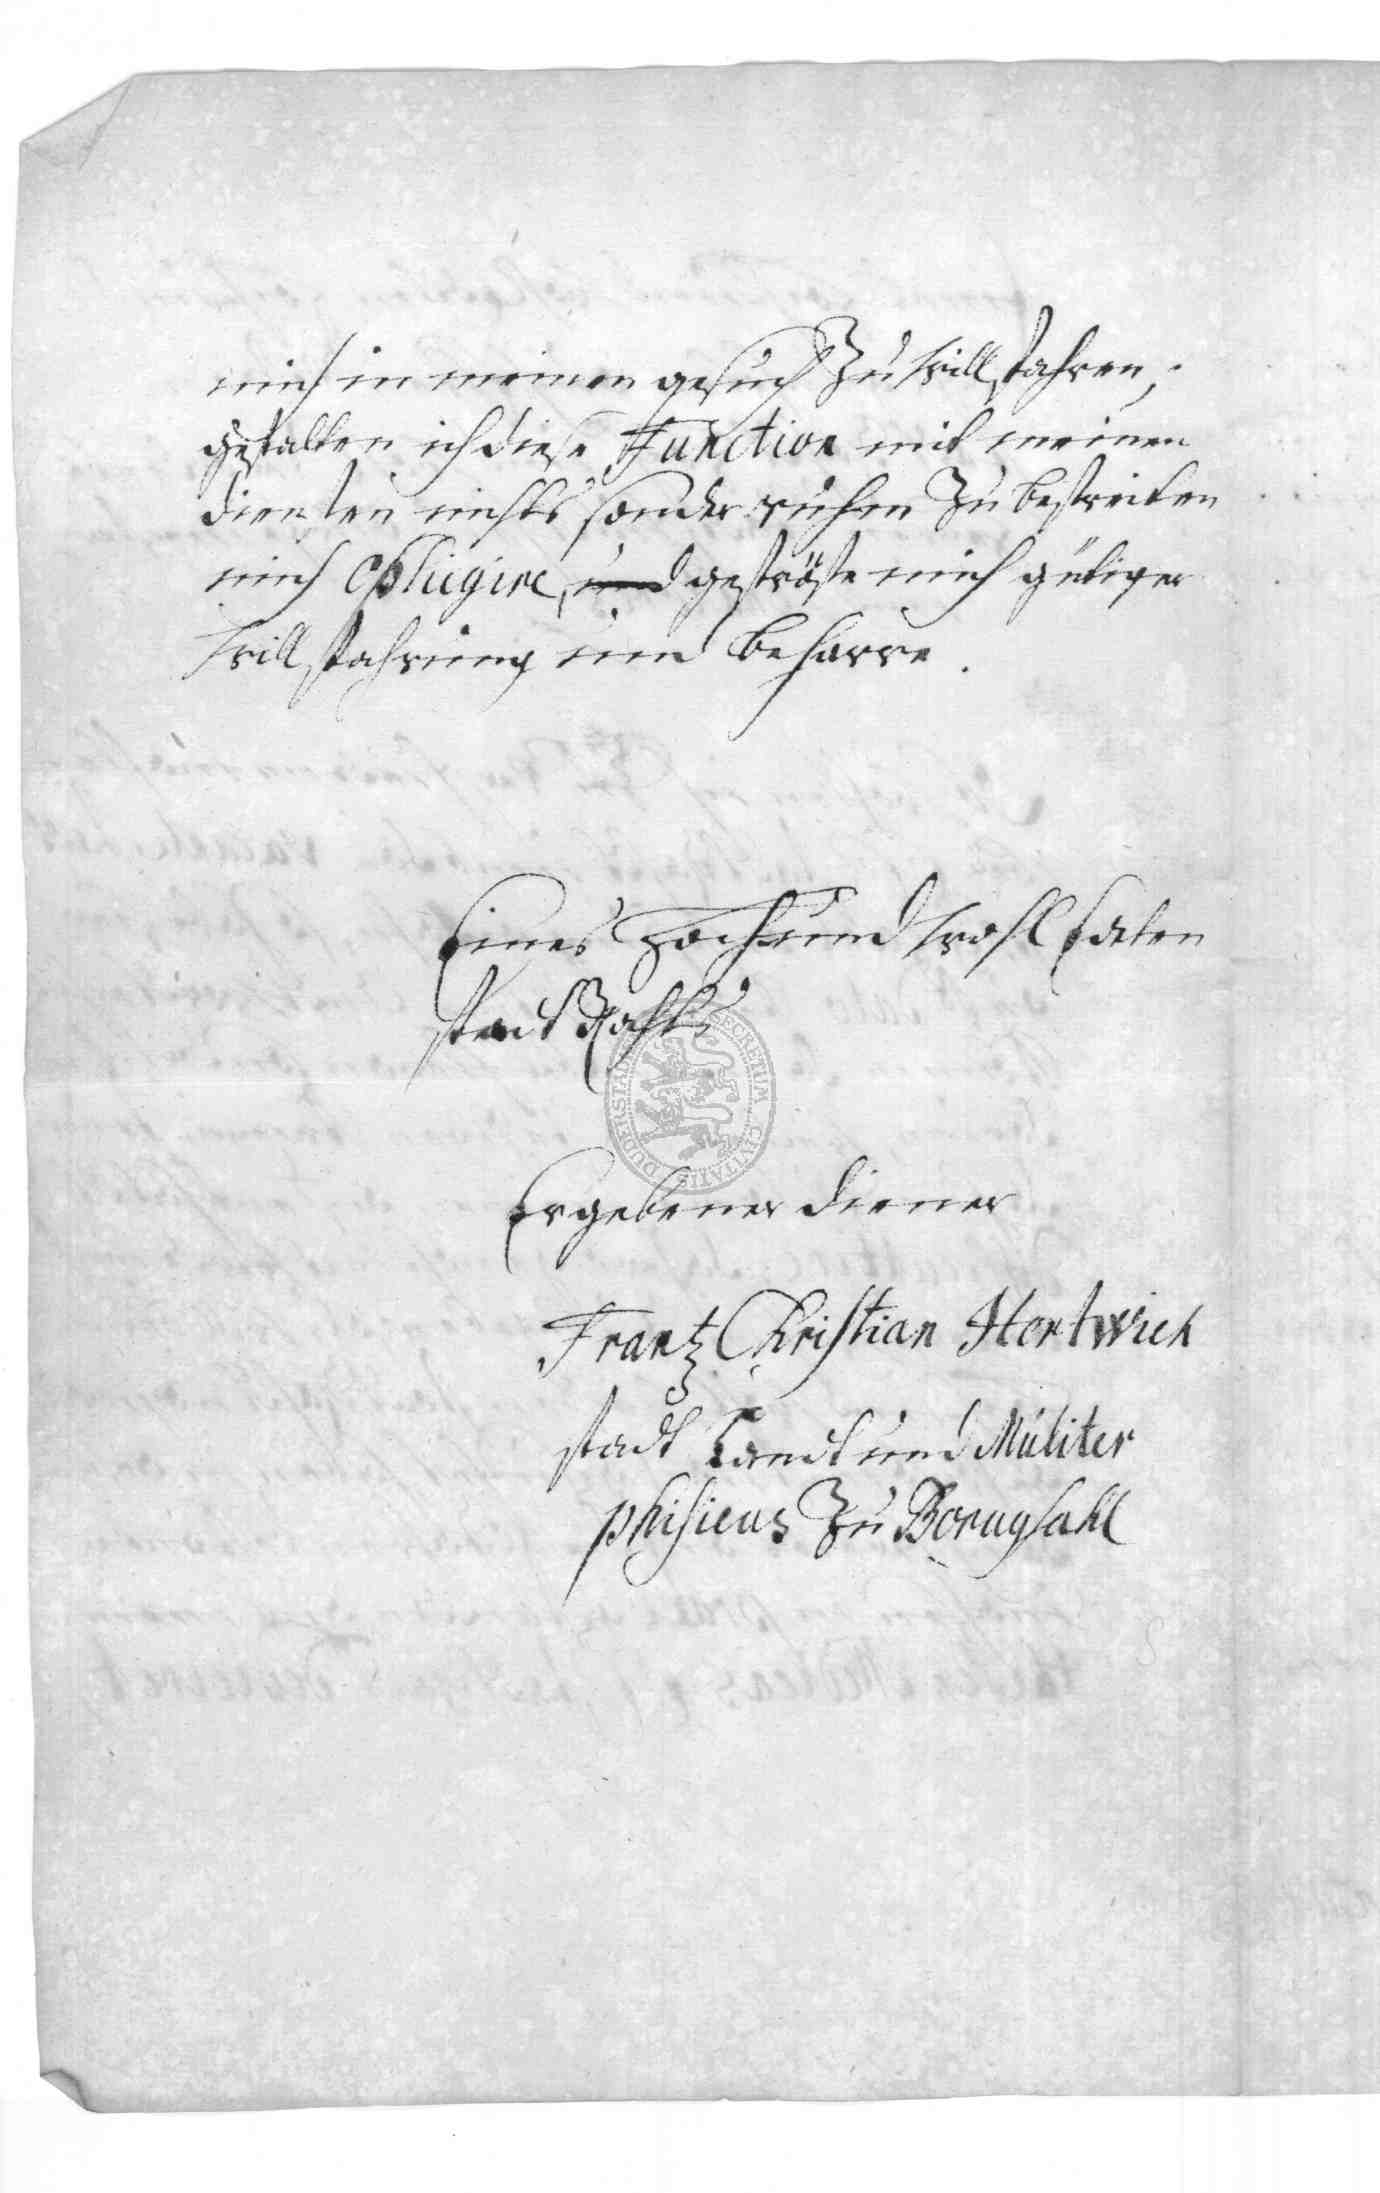 mich in meinen gesuch Zu willfahren,
gestalten ich diese Function mit meinen
diensten nichts sonder ruhm Zu bestreiten
mich obliigire, und getröste mich gütiger
willfahrung und beharre.
Eines Hoch und wohl Edlen
stadt Rahts
SECRETUM CIVITATIS DUDERSTAD
Ergebener diener
Frantz Christian Hertwich
stadt Landt und Militer
phisicus Zu Borngsahl